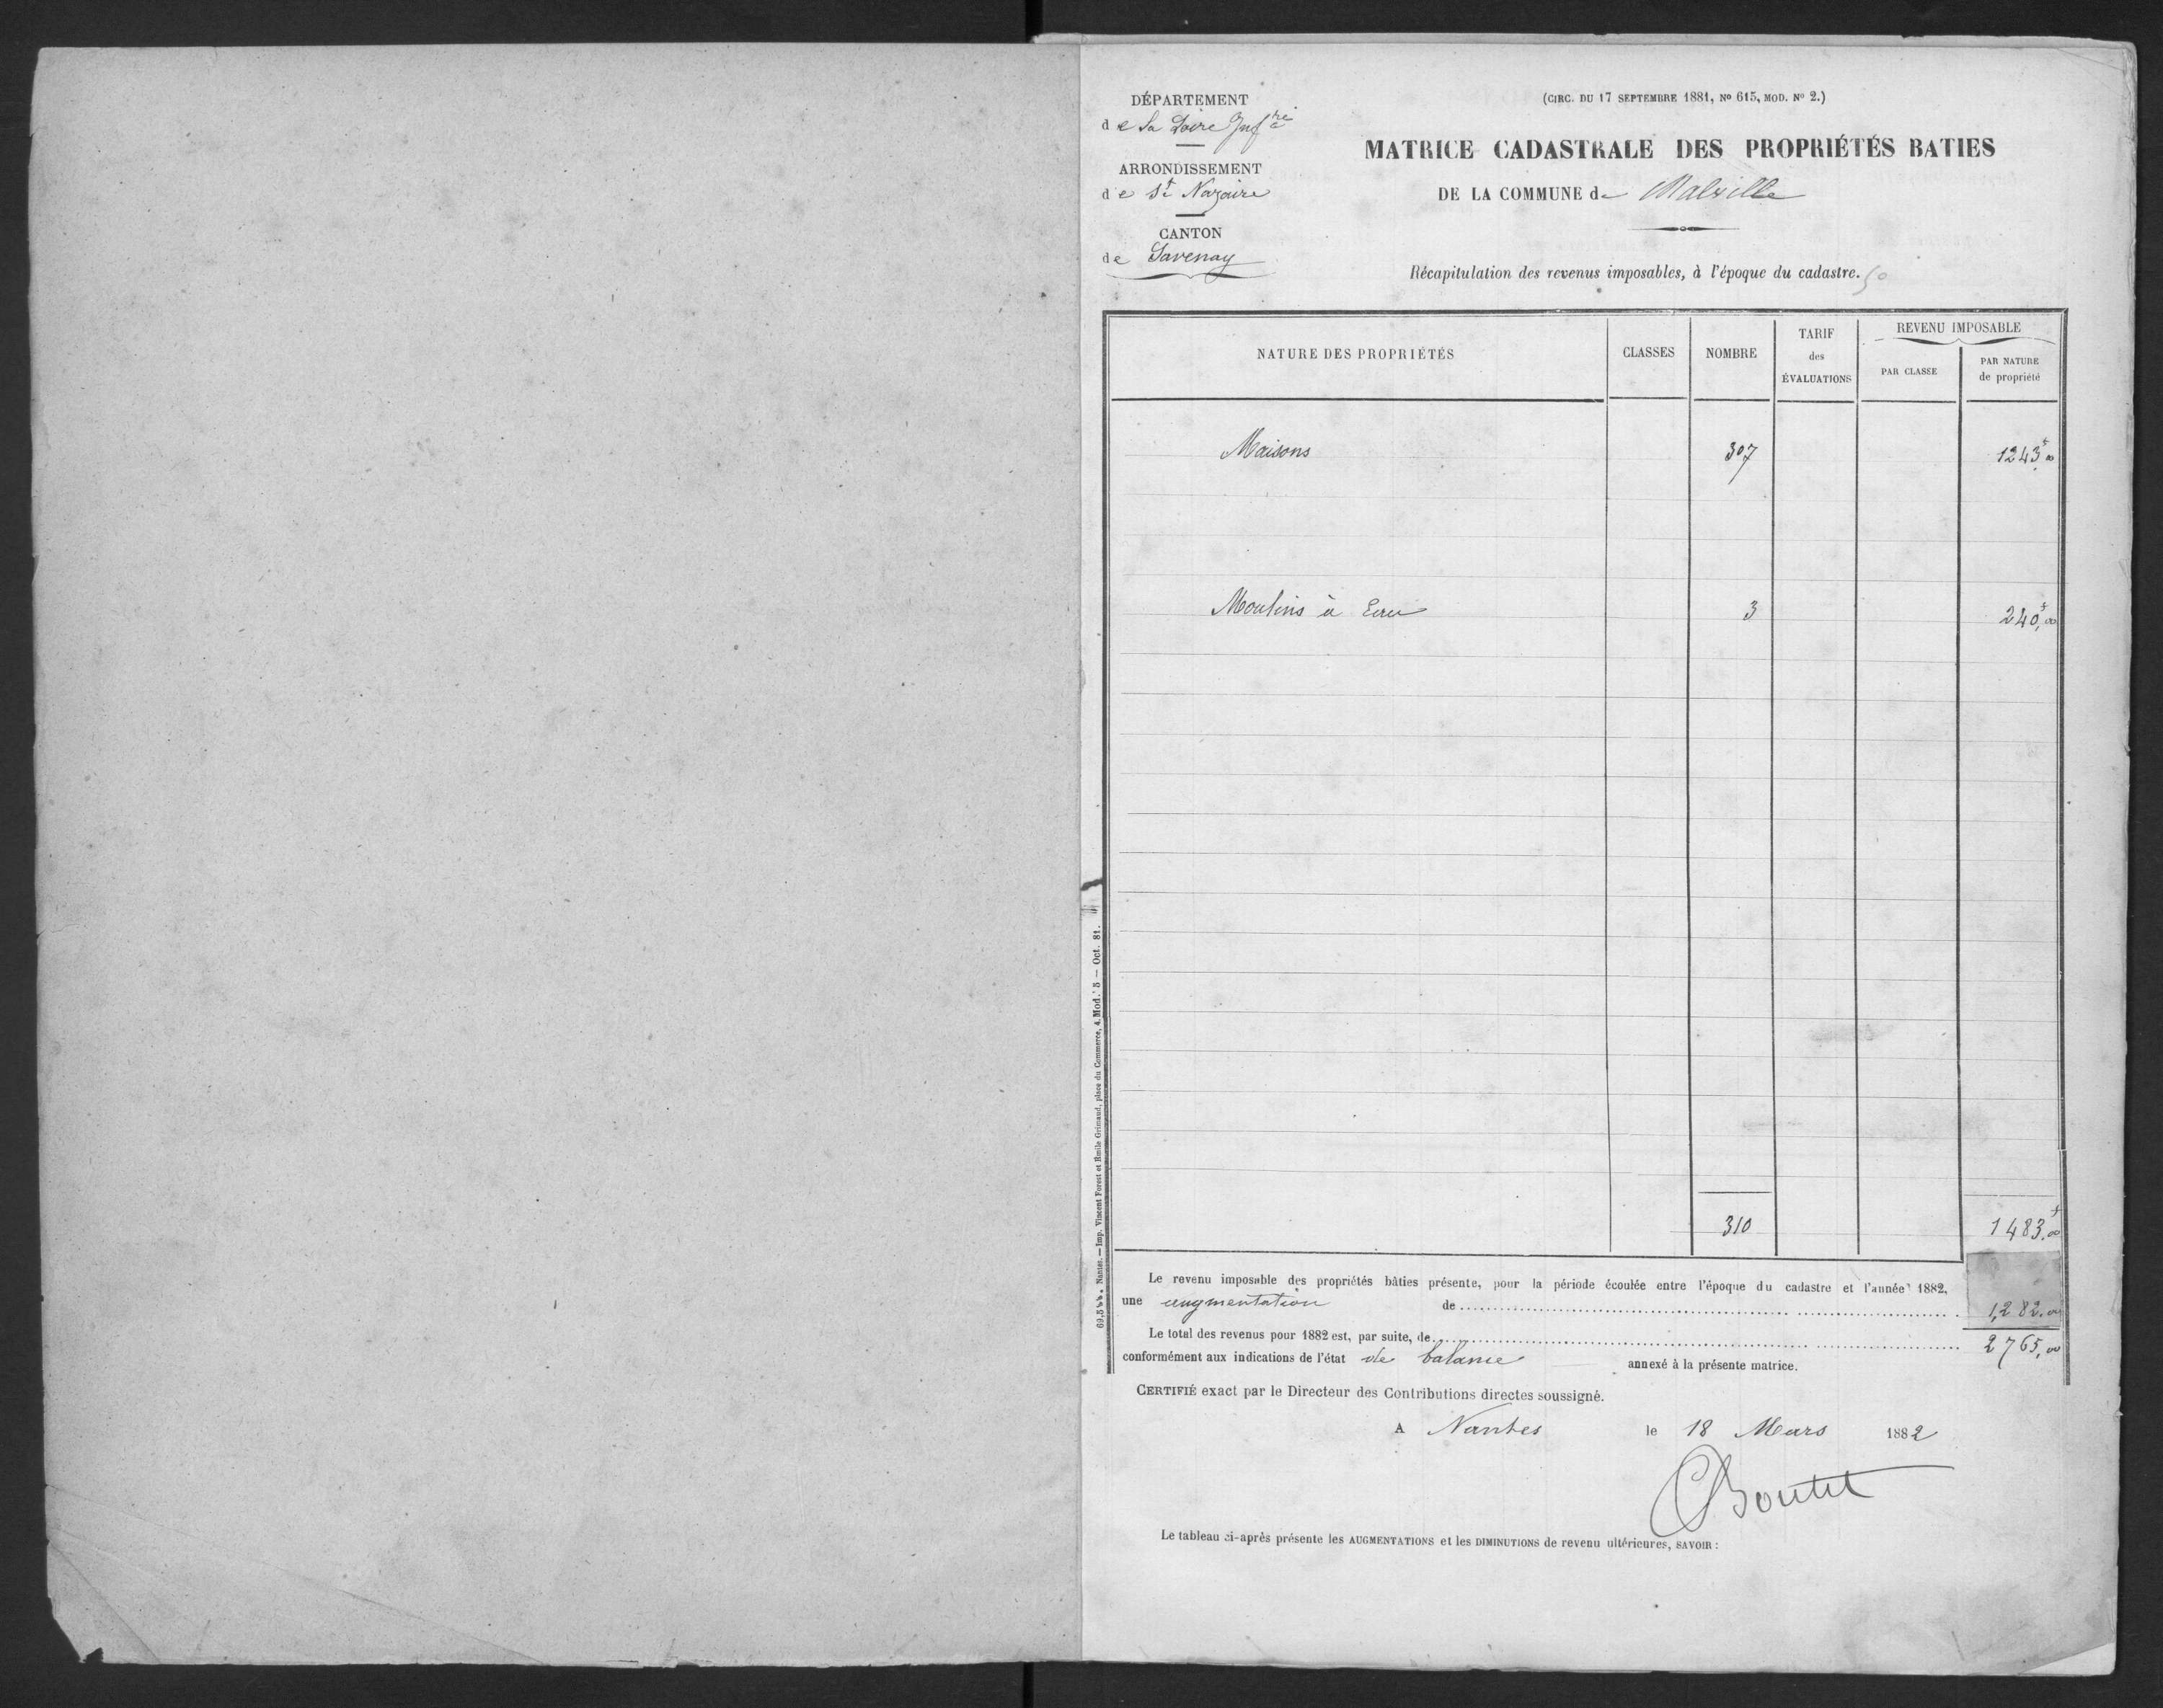 DÉPARTEMENT
de la Loire Infre
ARRONDISSEMENT
de St Nazaire
CANTON
de Savenay
(CIRC. DU 17 SEPTEMBRE 1881, No 615, MOD. No 2.)
MATRICE CADASTRALE DES PROPRIÉTÉS BATIES
DE LA COMMUNE de Malville
Récapitulation des revenus imposables, à l'époque du cadastre.
NATURE DES PROPRIÉTÉS CLASSES NOMBRE TARIF des ÉVALUATIONS REVENU IMPOSABLE
PAR CLASSE PAR NATURE de propriété
Maisons 307 1243f,00
Moulins à Eau 3 240f,00
310 1483f,00
Le revenu imposable des propriétés bâties présente, pour la période écoulée entre l'époque du cadastre et l'année 1882,
une augmentation de 1,282.00
Le total des revenus pour 1882 est, par suite, de 2765,00
conformément aux indications de l'état de balance annexé à la présente matrice.
CERTIFIÉ exact par le Directeur des Contributions directes soussigné.
A Nantes le 18 Mars 1882
Boutet
Le tableau ci-après présente les AUGMENTATIONS et les DIMINUTIONS de revenu ultérieures, SAVOIR :
Nantes. — Imp. Vincent Forest et Emile Grimaud, place du Commerce, 4. Mod. 5 — Oct. 81.